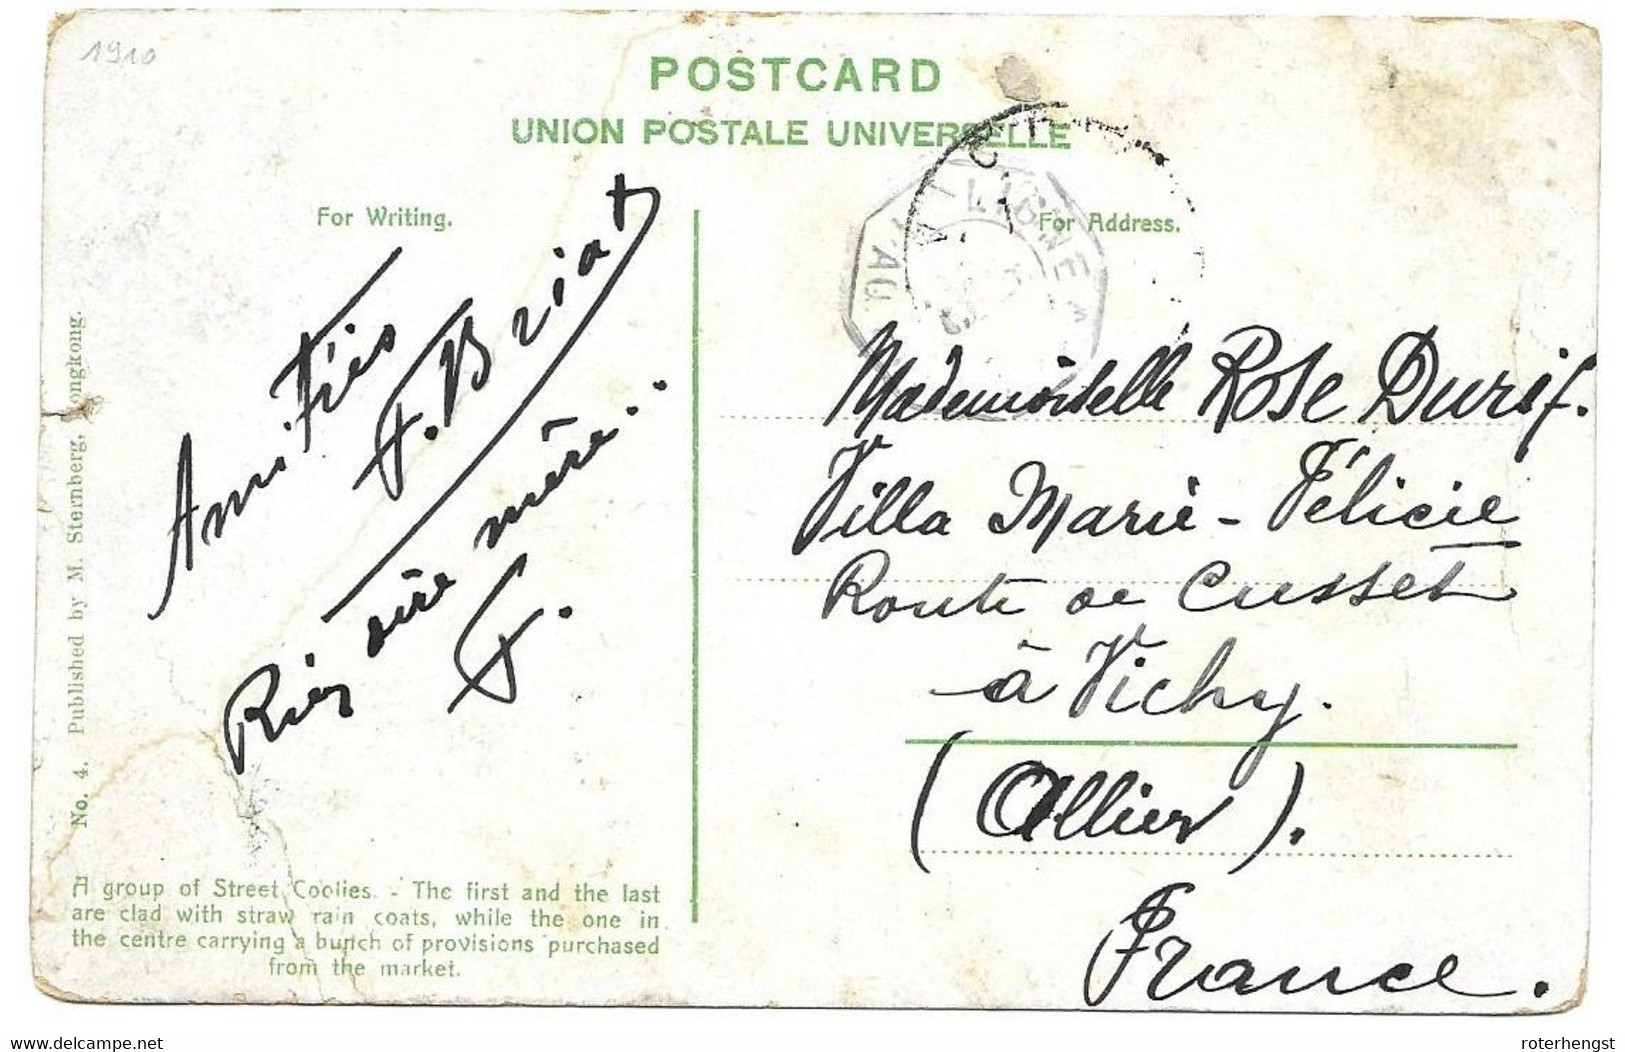 1910
POSTCARD
UNION POSTALE UNIVERSELLE
For Writing.
For Address.
LIGNE
No. 4. Published by M. Sternberg, Hongkong.
Amitiés
F. Briat
Ries
mère...
F.
Mademoiselle Rose Durif.
Villa Marie-Félicie
Route de Cusset
à Vichy.
(Allier).
France.
A group of Street Coolies. - The first and the last
are clad with straw rain coats, while the one in
the centre carrying a bunch of provisions purchased
from the market.
www.delcampe.net
roterhengst